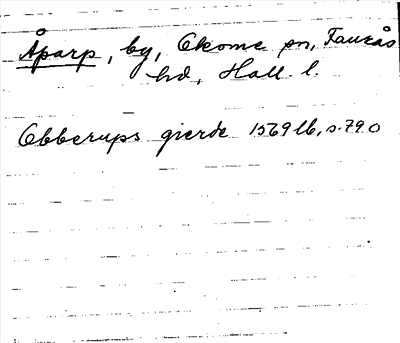 Åparp, by, Okome sn, Faurås
hd, Hall. l.
Obberups gierde 1569 lb, s. 79.0